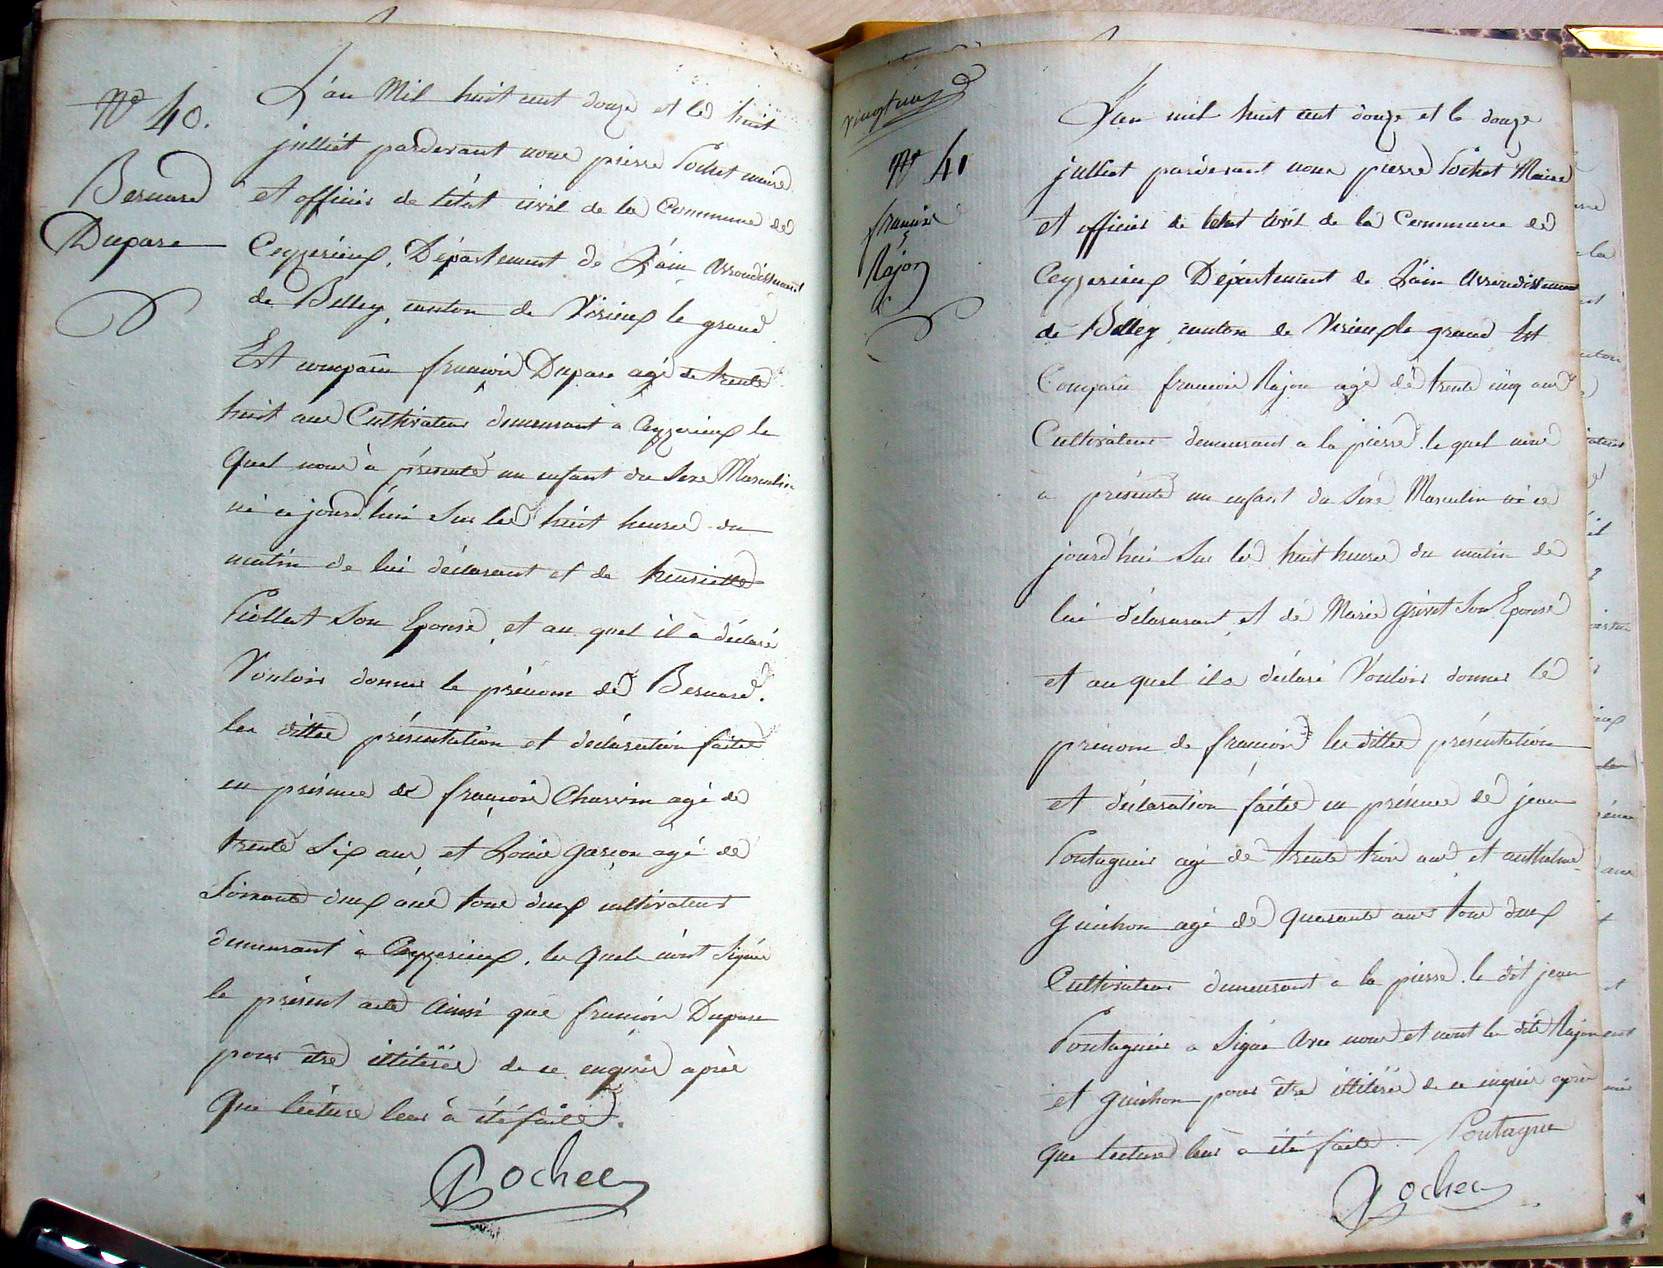 N° 40.
Bernard
Dupare
L'an Mil huit cent douze et le huit
julliet pardevant nous pierre Pochet maire
et officier de l'état civil de la Commune de
Ceyzerieux, Département de L'ain arrondissement
de Belley, canton de Virieux le grand
Est comparu françois Dupare agé de trente
huit ans Cultivateur demeurant a Ceyzerieux le
quel nous à présenté un enfant du Sexe Masculin
né ce jourd'hui Sur les huit heures du
matin de lui déclarant et de henriette
Piollat Son Epouse, et au quel il a déclaré
Vouloir donner le prénom de Bernard.
les dittes présentation et déclaration faites
en présence de françois Charvin agé de
trente Six ans et Louis garçon agé de
Soixante deux ans tous deux cultivateurs
demeurant à Ceyzerieux, les quels n'ont Signés
le présent acte Ainsi que françois Dupare
pour être illitérés de ce enquis après
que lecture leur à été faite.
Pochet
vingt un
N° 41
françois
Rajon
L'an mil huit cent douze et le douze
julliet pardevant nous pierre Pochet Maire
et officier de l'etat Civil de la Commune de
Ceyzerieux Département de L'ain arrondissement
de Belley canton de Virieux le grand Est
Comparu francois Rajon agé de trente cinq ans
Cultivateur demeurant a la pierre le quel nous
a présenté un enfant du Sexe Masculin né ce
jourd'hui Sur les huit heures du matin de
lui déclarant et de Marie Grinet Son Epouse
et au quel il a déclaré Vouloir donner le
prénom de francois les dittes présentation
et déclaration faites en présence de jean
Pontagnier agé de trente trois ans et anthelme
guichon agé de quarante ans tous deux
Cultivateur demeurant a la pierre. le dit jean
Pontagnier a Signé Avec nous et nont les dits Rajon
et guichon pour être illitérés de ce enquis après
que lecture leur a été faite. Pontagne
Pochet